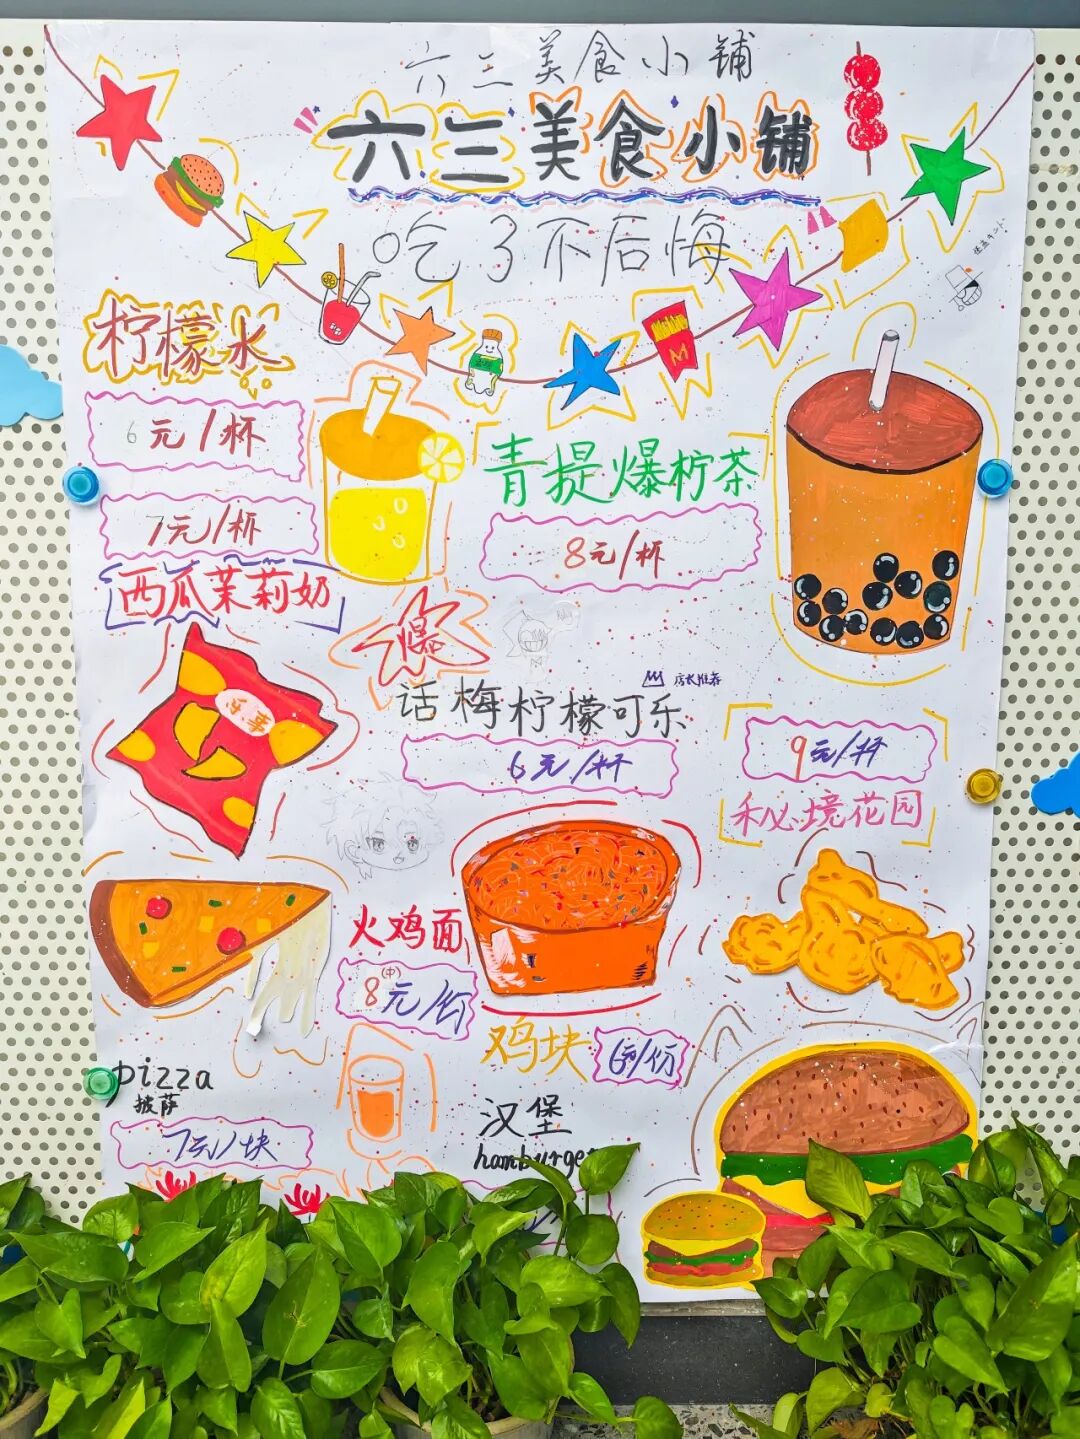 六三美食小铺
六三美食小铺
吃了不后悔
柠檬水
6元/杯
7元/杯
西瓜茉莉奶
青提爆柠茶
8元/杯
爆
话梅柠檬可乐
店长推荐
6元/杯
9元/杯
秘境花园
乐事
火鸡面
(中)
8元/份
鸡块
6元/份
pizza
披萨
7元/块
汉堡
hamburger
M